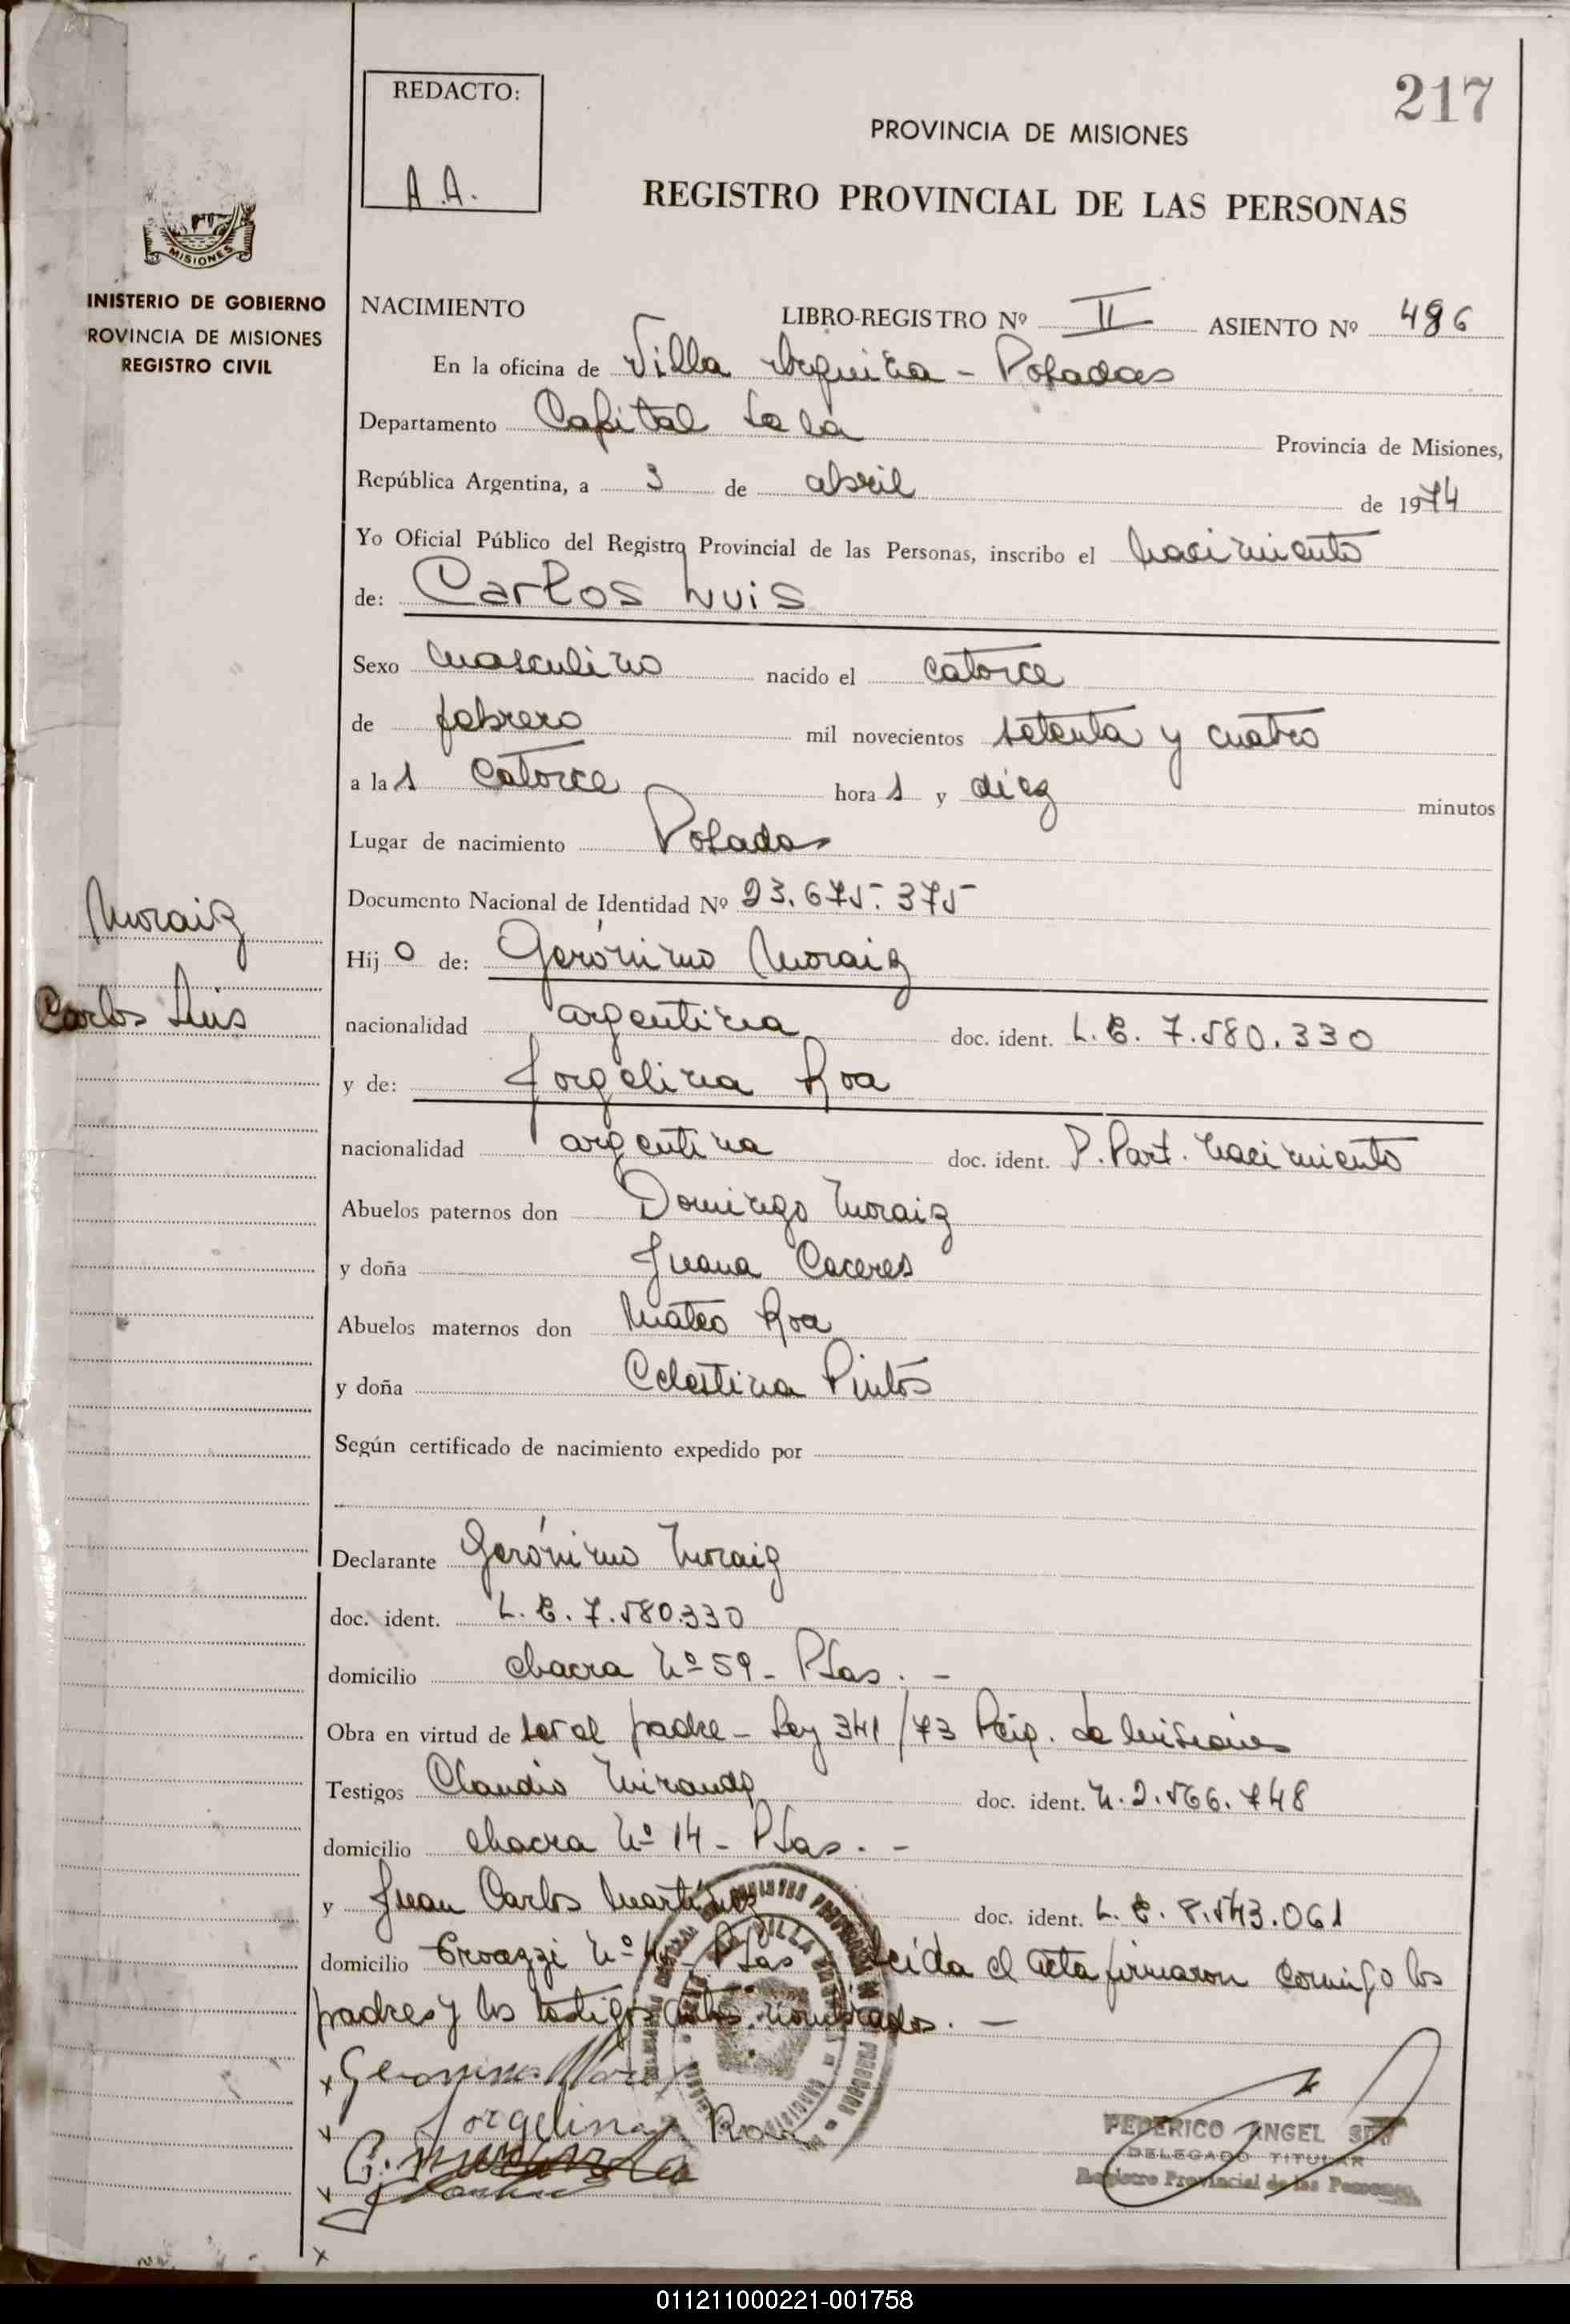 217
REDACTO:
A.A.
PROVINCIA DE MISIONES
REGISTRO PROVINCIAL DE LAS PERSONAS
MISIONES
INISTERIO DE GOBIERNO
ROVINCIA DE MISIONES
REGISTRO CIVIL
NACIMIENTO LIBRO-REGISTRO Nº II ASIENTO Nº 496
En la oficina de Villa Urquiza - Posadas
Departamento Capital Provincia de Misiones,
República Argentina, a 3 de abril de 1974
Yo Oficial Público del Registro Provincial de las Personas, inscribo el nacimiento
de: Carlos Luis
Sexo masculino nacido el catorce
de febrero mil novecientos setenta y cuatro
a la s catorce hora s y diez minutos
Lugar de nacimiento Posadas
Documento Nacional de Identidad Nº 23.675.375
Moraiz
Carlos Luis
Hij o de: Gerónimo Moraiz
nacionalidad argentina doc. ident. L.E. 7.580.330
y de: Jorgelina Roa
nacionalidad argentina doc. ident. P. Part. nacimiento
Abuelos paternos don Domingo Moraiz
y doña Juana Caceres
Abuelos maternos don Mateo Roa
y doña Celestina Pintos
Según certificado de nacimiento expedido por
Declarante Gerónimo Moraiz
doc. ident. L.E. 7.580.330
domicilio chacra Nº 59 - Psas. -
Obra en virtud de ser el padre - Ley 341/73 de Misiones
Testigos Claudio Miranda doc. ident. M. 2.566.748
domicilio chacra Nº 14 - Psas. -
y Juan Carlos Martinez doc. ident. L.E. 8.543.061
domicilio Nº Psas Leida el acta firmaron conmigo los
padres y los testigos antes nombrados. -
x Geronimo Moraiz
x Jorgelina Roa
x
x
FEDERICO ANGEL
DELEGADO TITULAR
Registro Provincial de las Personas
011211000221-001758